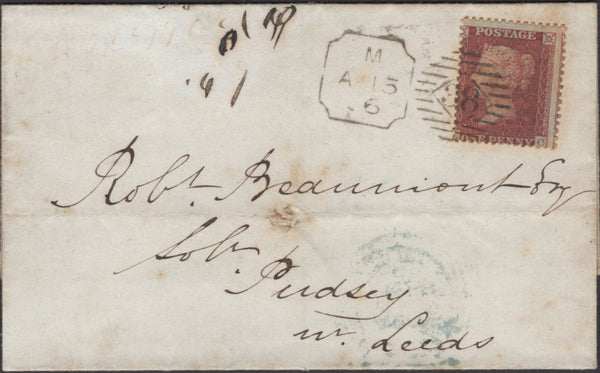 POSTAGE
M
A 15
6
8
ONE PENNY
C
Robt. Beaumont Esq
Solr.
Pudsey
nr. Leeds